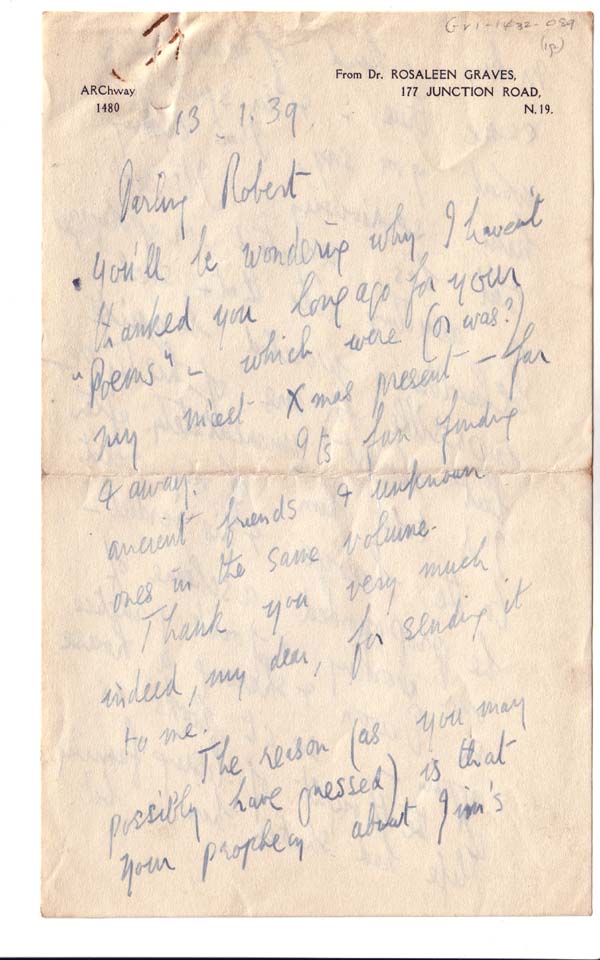 Gr1-1432-089
(ip)
ARChway
1480
From Dr. ROSALEEN GRAVES,
177 JUNCTION ROAD,
N.19.
13.1.39.
Darling Robert
You'll be wondering why I haven't
thanked you long ago for your
"Poems" – which were (or was?)
my nicest Xmas present – far
& away. Its fun finding
ancient friends & unknown
ones in the same volume.
Thank you very much
indeed, my dear, for sending it
to me.
The reason (as you may
possibly have guessed) is that
your prophecy about Jim's